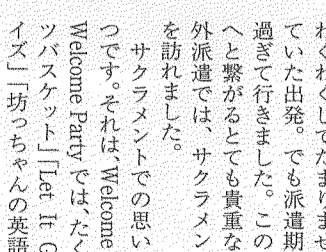 わくわくしてたまりませ
ていた出発。でも派遣期
過ぎて行きました。この
へと繋がるとても貴重な
外派遣では、サクラメン
を訪れました。
サクラメントでの思い
つです。それは、Welcome
Welcome Party では、たく
ツバスケット」「Let It G
イズ」「坊っちゃんの英語